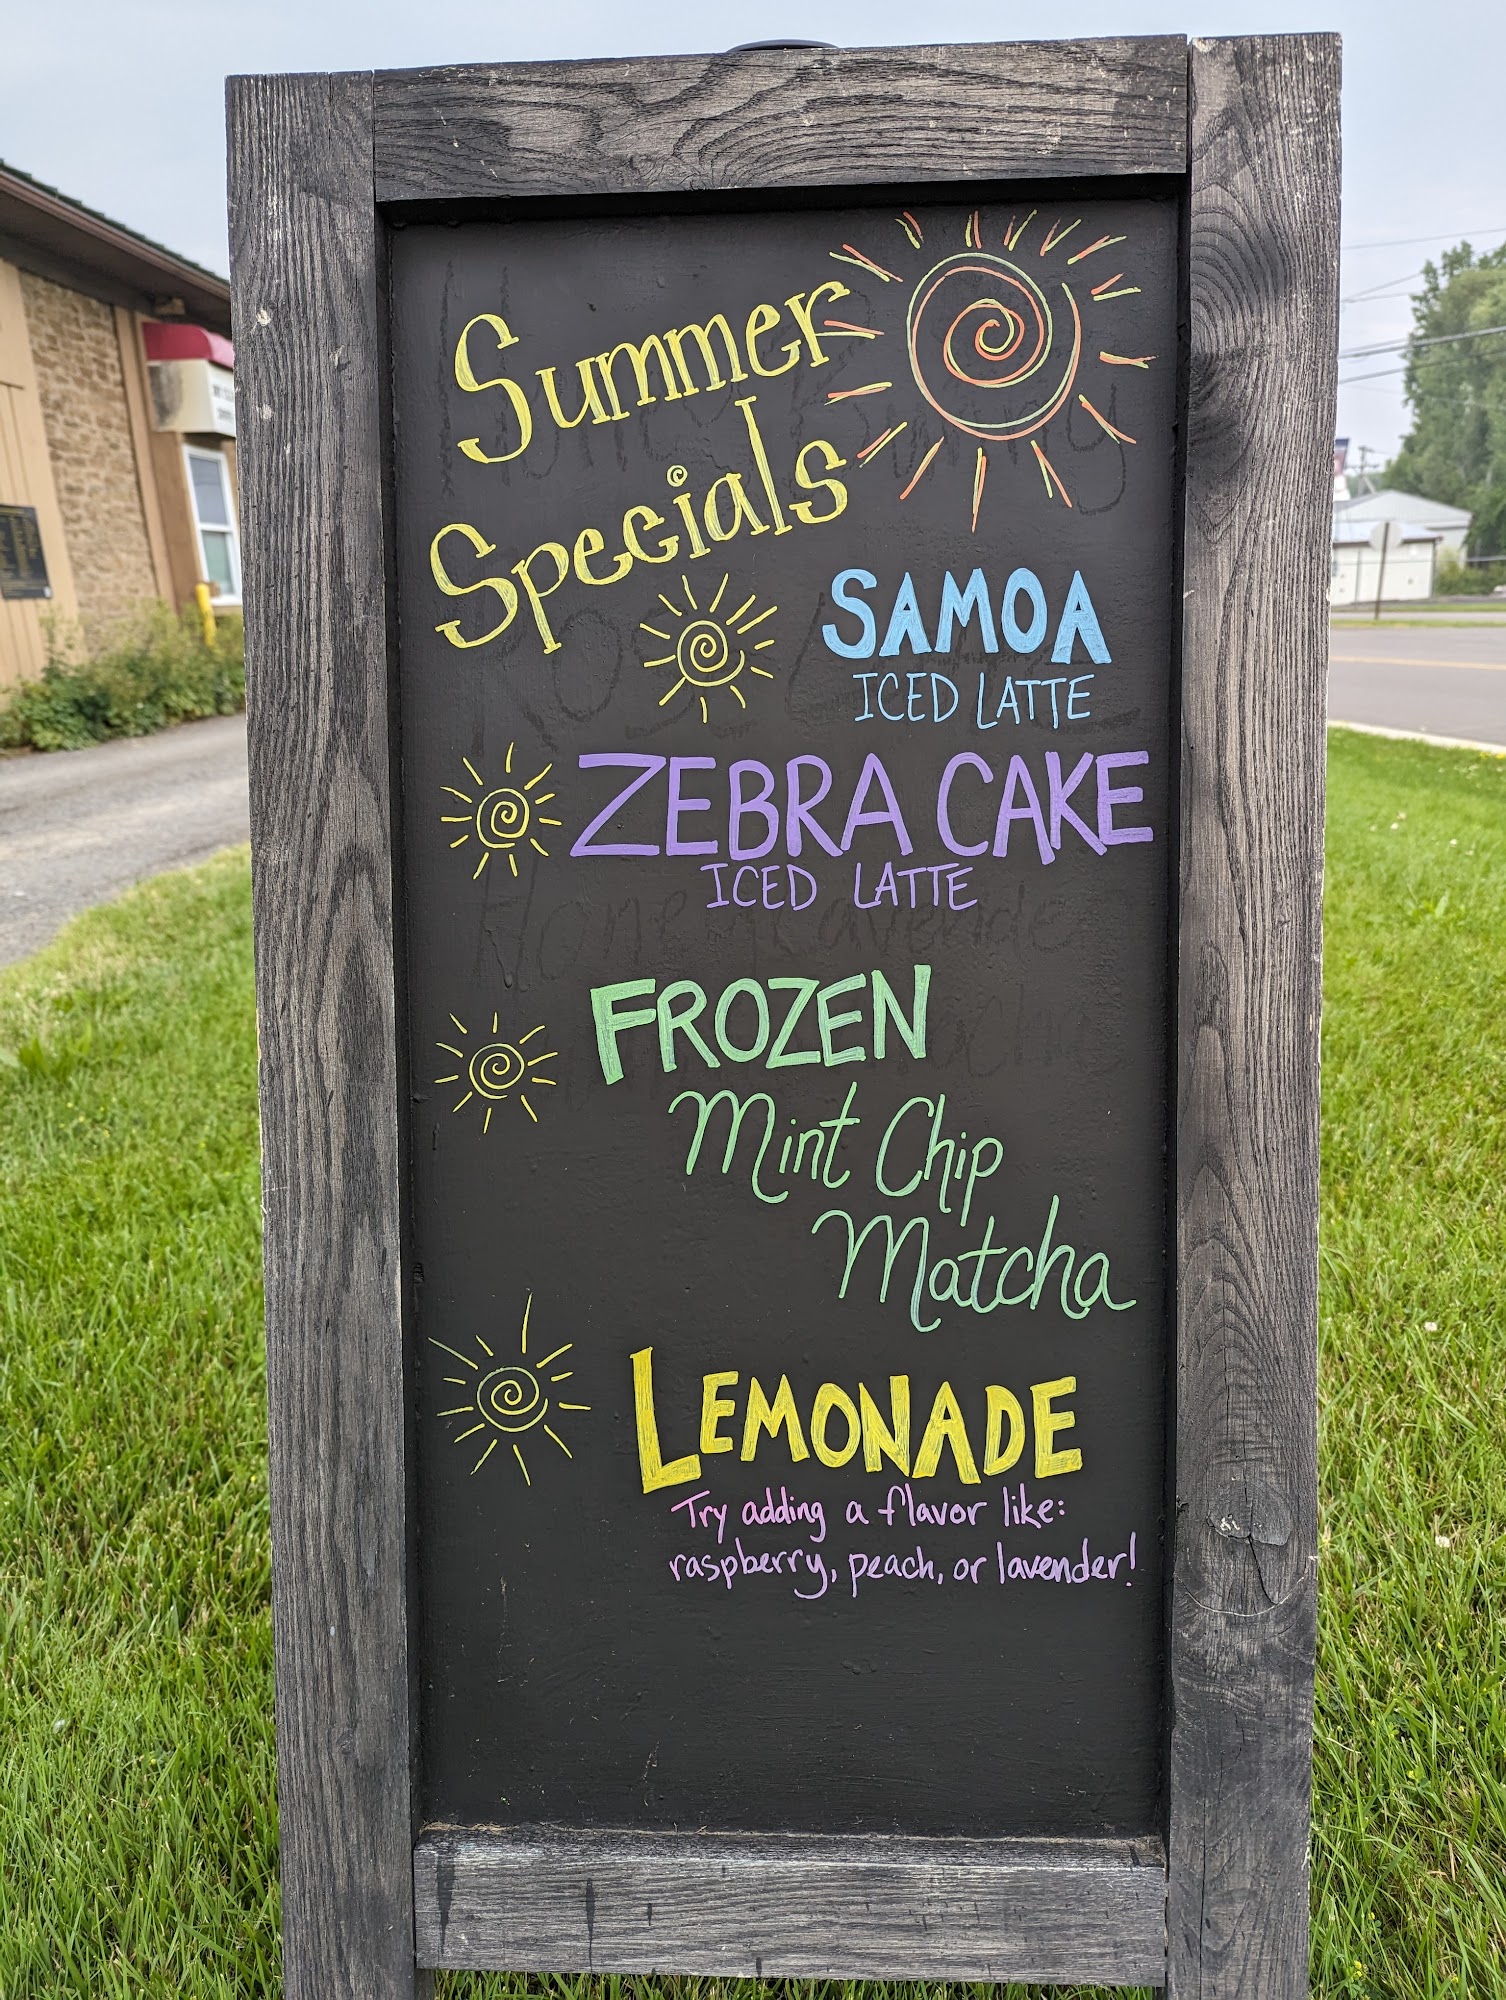 Summer
Specials
SAMOA
ICED LATTE
ZEBRA CAKE
ICED LATTE
FROZEN
Mint Chip
Matcha
LEMONADE
Try adding a flavor like:
raspberry, peach, or lavender!